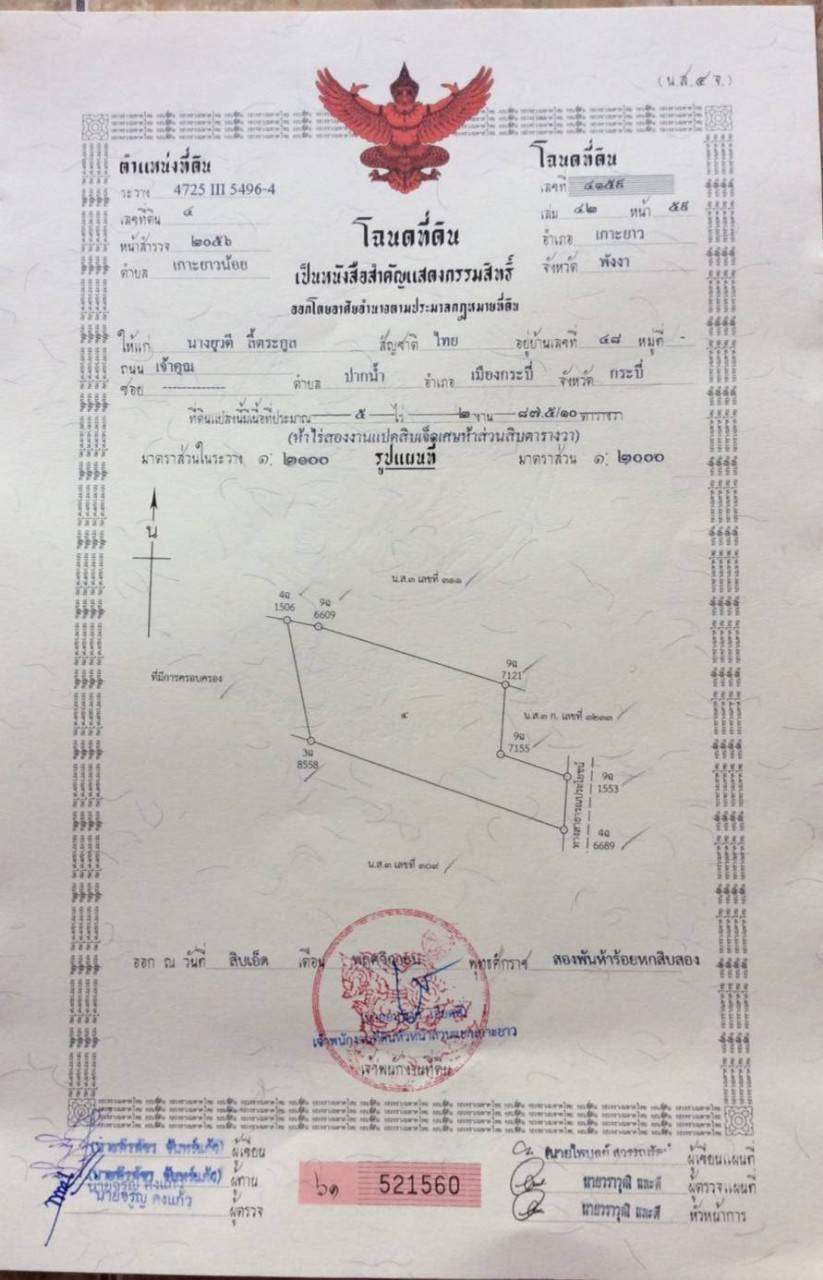 (น.ส.๔ จ.)
ตำแหน่งที่ดิน
ระวาง 4725 III 5496-4
เลขที่ดิน ๔
หน้าสำรวจ ๒๐๕๖
ตำบล เกาะยาวน้อย
โฉนดที่ดิน
เลขที่ ๔๑๕๙
เล่ม ๔๒ หน้า ๕๙
อำเภอ เกาะยาว
จังหวัด พังงา
โฉนดที่ดิน
เป็นหนังสือสำคัญแสดงกรรมสิทธิ์
ออกโดยอาศัยอำนาจตามประมวลกฎหมายที่ดิน
ให้แก่ นางยุวดี ลิ้ตระกูล สัญชาติ ไทย อยู่บ้านเลขที่ ๔๘ หมู่ที่ -
ถนน เจ้าคุณ
ซอย ตำบล ปากน้ำ อำเภอ เมืองกระบี่ จังหวัด กระบี่
ที่ดินแปลงนี้มีเนื้อที่ประมาณ ๕ ไร่ ๒ งาน ๘๗.๕/๑๐ ตารางวา
(ห้าไร่สองงานแปดสิบเจ็ดเศษห้าส่วนสิบตารางวา)
มาตราส่วนในระวาง ๑: ๒๑๐๐ รูปแผนที่ มาตราส่วน ๑: ๒๐๐๐
น
น.ส.๓ เลขที่ ๓๑๑
4ฉ 9ฉ
1506 6609
9ฉ
7121
ที่มีการครอบครอง
๔
น.ส.๓ ก. เลขที่ ๑๒๓๓
9ฉ
7155
3ฉ
8558
ทางสาธารณประโยชน์
9ฉ
1553
4ฉ
6689
น.ส.๓ เลขที่ ๓๐๙
ออก ณ วันที่ สิบเอ็ด เดือน พฤศจิกายน พุทธศักราช สองพันห้าร้อยหกสิบสอง
เจ้าพนักงานที่ดินหัวหน้าส่วนแยกเกาะยาว
เจ้าพนักงานที่ดิน
ผู้เขียน
ผู้ทาน
นายจรูญ คงแก้ว
นายจรูญ คงแก้ว ผู้ตรวจ
๖๑ 521560
นายไพบูลย์ ผู้เขียนแผนที่
นายวราวุฒิ และดี ผู้ตรวจแผนที่
นายวราวุฒิ และดี หัวหน้าการ